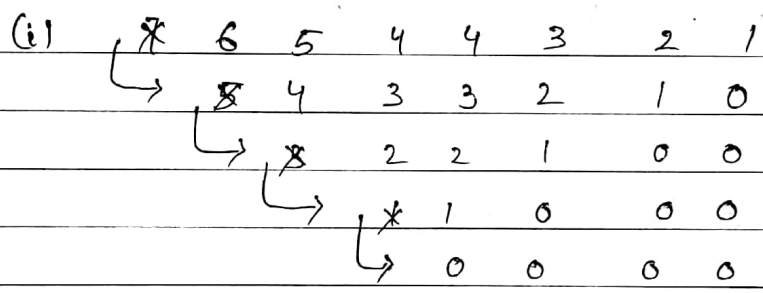 (i) 7 6 5 4 4 3 2 1
5 4 3 3 2 1 0
3 2 2 1 0 0
1 0 0 0
0 0 0 0